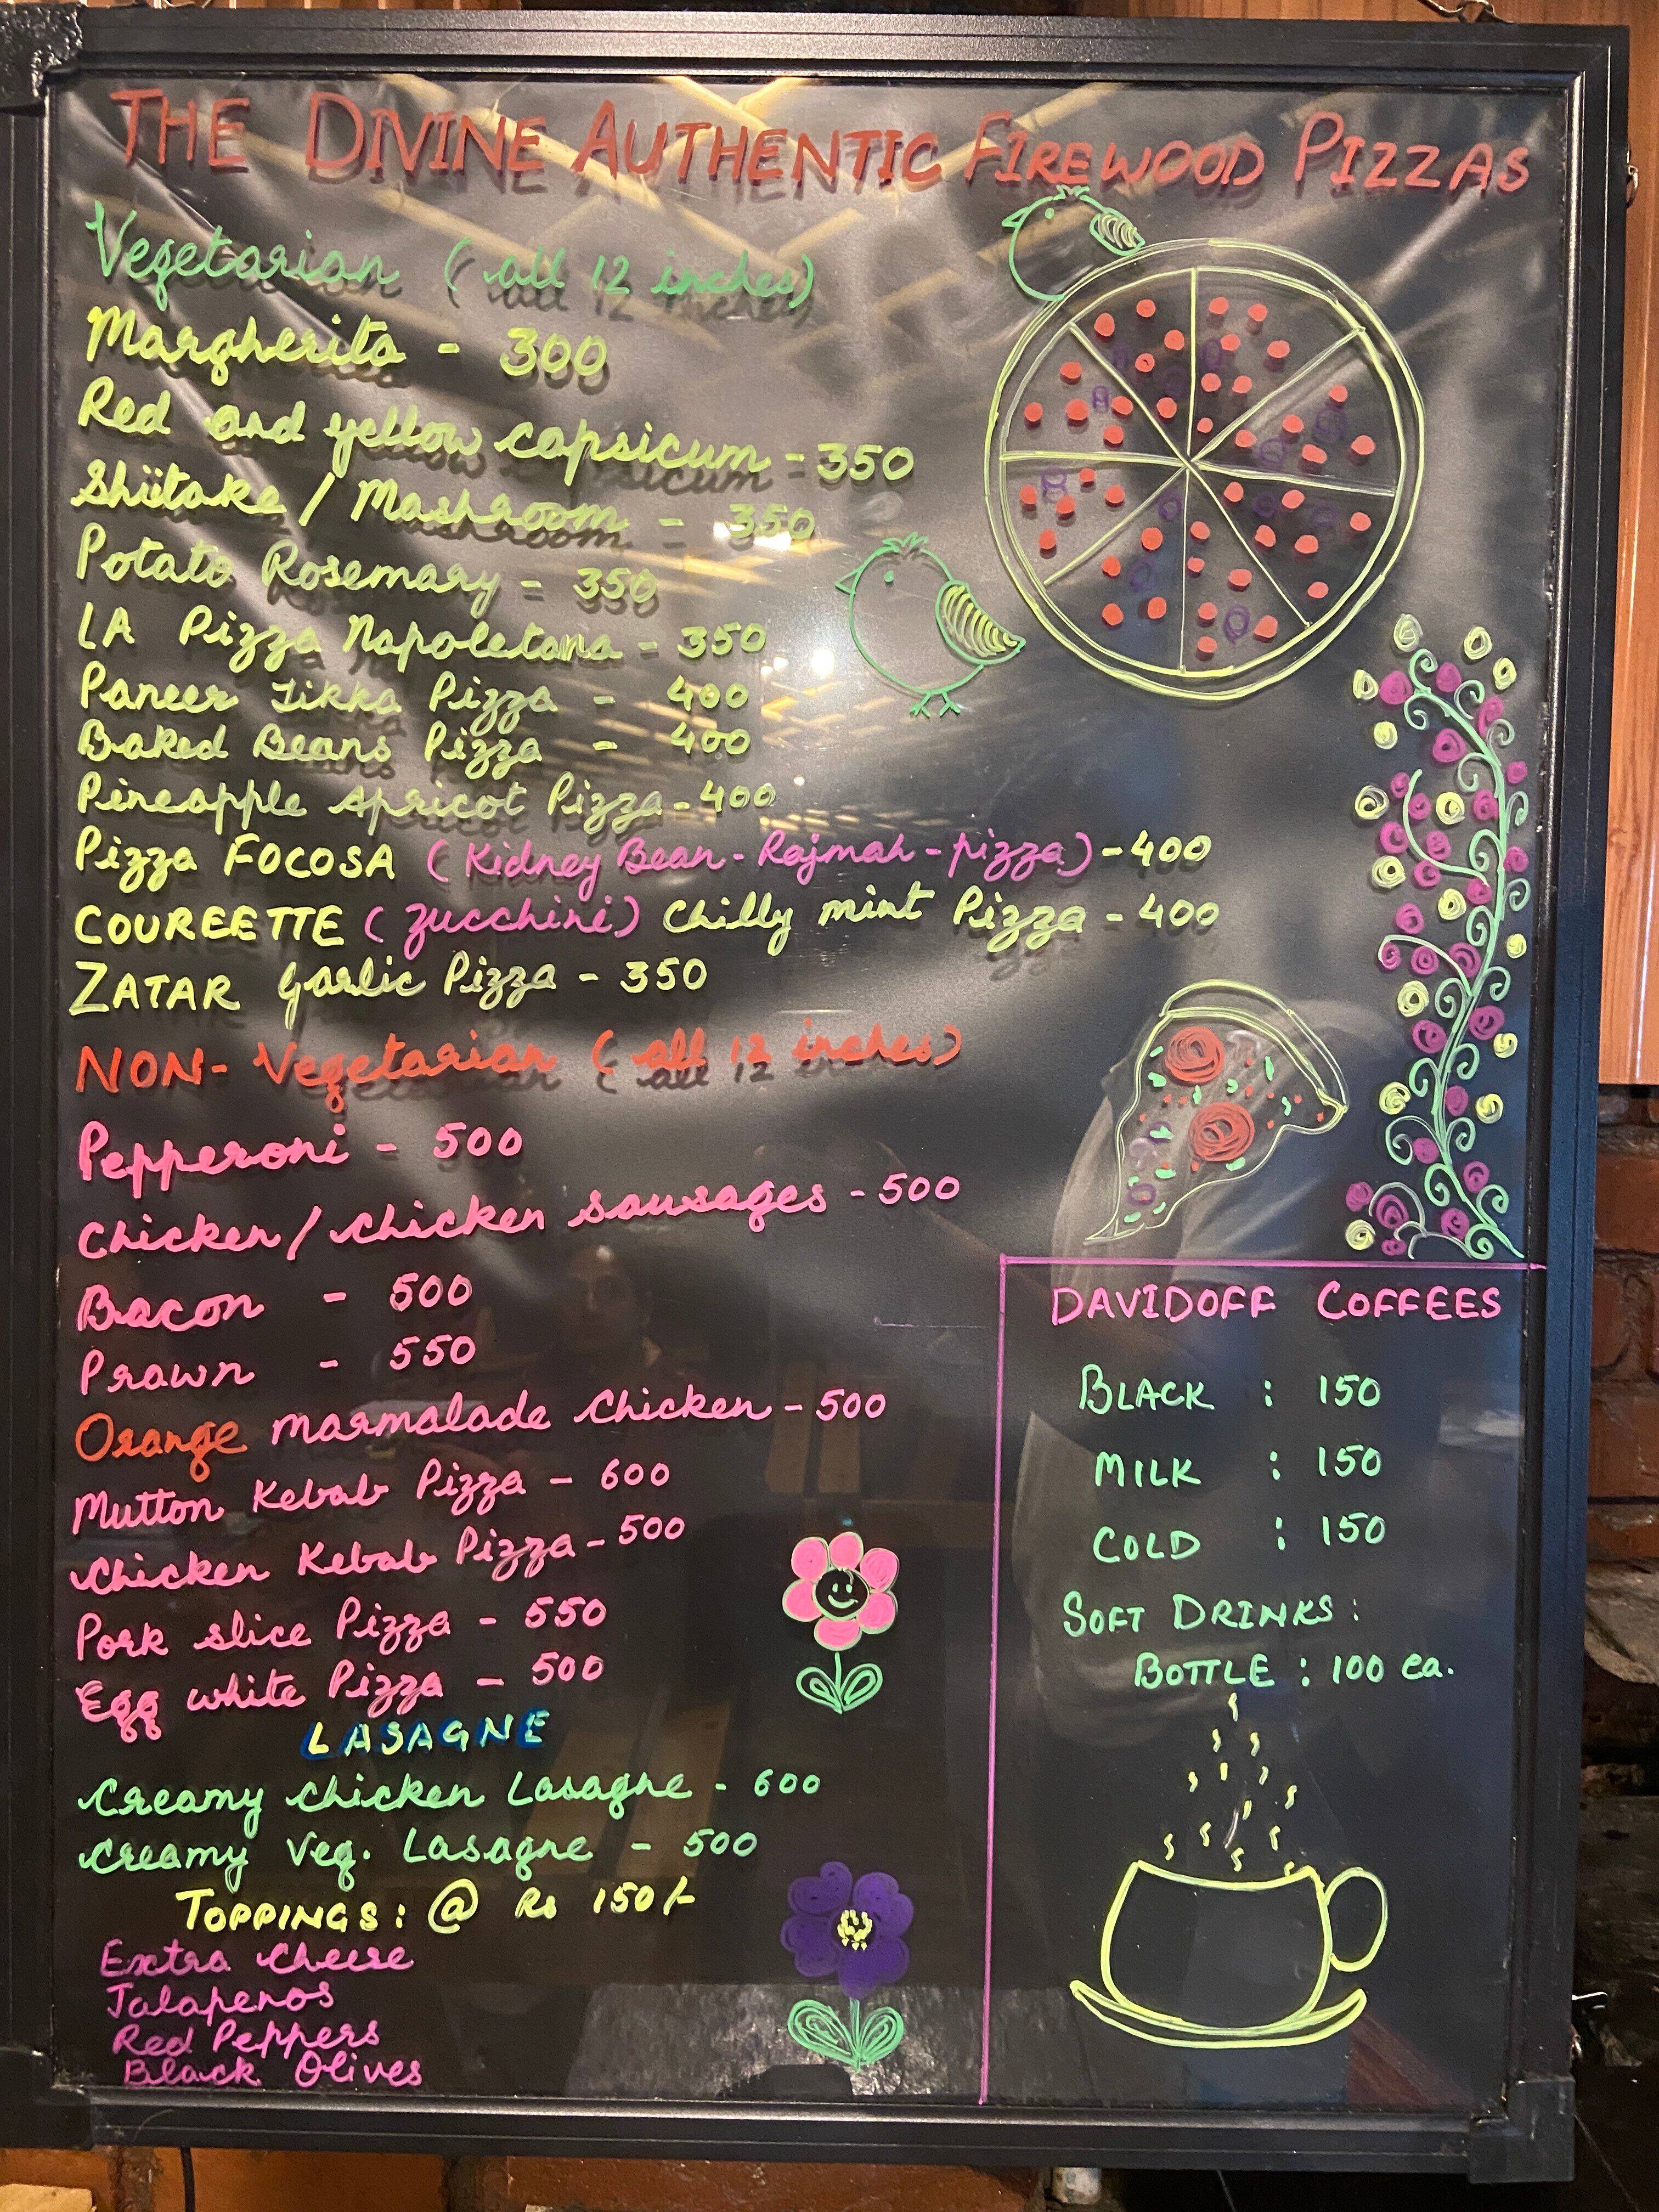 THE DIVINE AUTHENTIC FIREWOOD PIZZAS
Vegetarian (all 12 inches)
Margherita - 300
Red and yellow capsicum - 350
Shiitake / Mashroom - 350
Potato Rosemary - 350
LA Pizza Napoletana - 350
Paneer Tikka Pizza - 400
Baked Beans Pizza - 400
Pineapple Apricot Pizza - 400
Pizza FOCOSA (Kidney Bean - Rajmah - pizza) - 400
COUREETTE (zucchini) Chilly mint Pizza - 400
ZATAR Garlic Pizza - 350
NON- Vegetarian (all 12 inches)
Pepperoni - 500
Chicken / chicken sausages - 500
Bacon - 500
Prawn - 550
Orange marmalade Chicken - 500
Mutton Kebab Pizza - 600
Chicken Kebab Pizza - 500
Pork slice Pizza - 550
Egg white Pizza - 500
LASAGNE
Creamy chicken Lasagne - 600
Creamy Veg. Lasagne - 500
TOPPINGS: @ Rs 150/-
Extra Cheese
Jalapenos
Red Peppers
Black Olives
DAVIDOFF COFFEES
BLACK : 150
MILK : 150
COLD : 150
SOFT DRINKS:
BOTTLE : 100 ea.